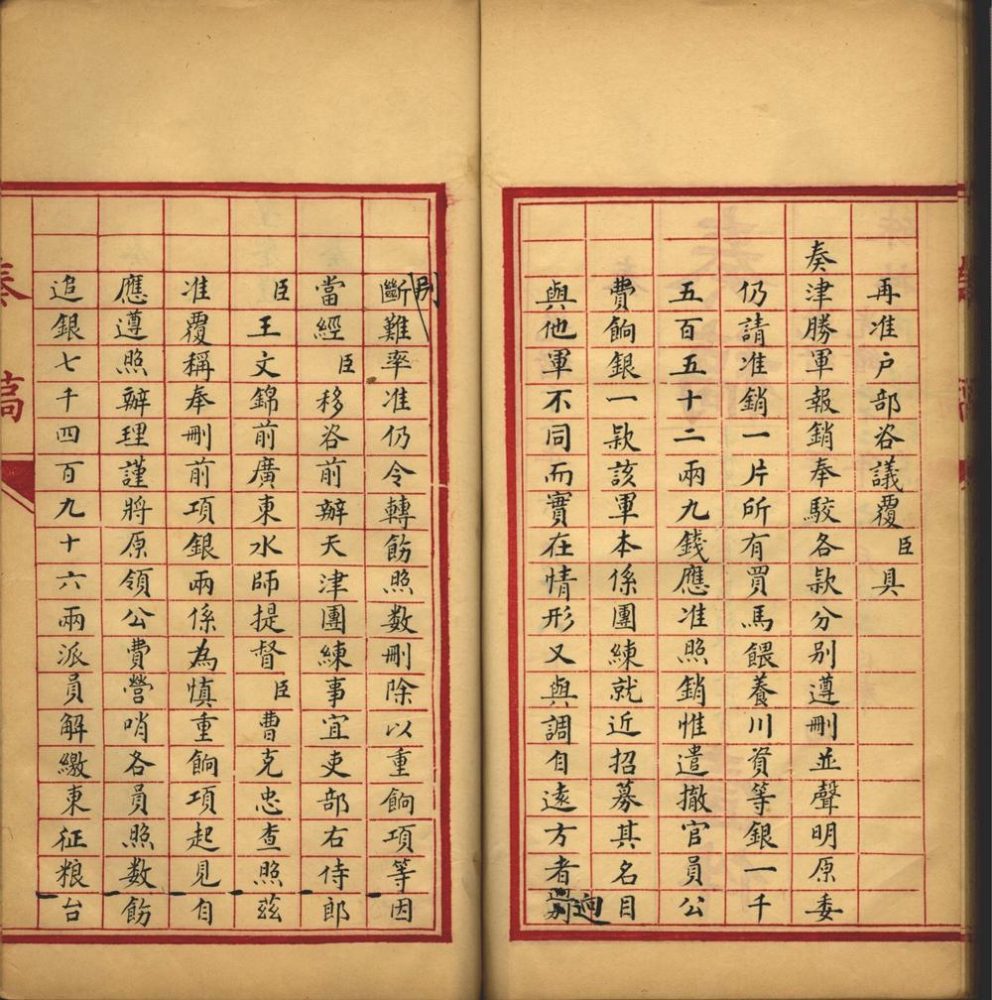 再准戶部咨議覆臣具
奏津勝軍報銷奉駮各款分别遵刪並聲明原委
仍請准銷一片所有買馬餵養川資等銀一千
五百五十二兩九錢應准照銷惟遣撤官員公
費餉銀一款該軍本係團練就近招募其名目
與他軍不同而實在情形又與調自遠方者迥
别斷難率准仍令轉飭照数刪除以重餉項等因
當經臣移咨前辦天津團練事宜吏部右侍郎
臣王文錦前廣東水師提督臣曹克忠查照茲
准覆稱奉刪前項銀兩係為慎重餉項起見自
應遵照辦理謹將原領公費營哨各員照数飭
追銀七千四百九十六兩派員解繳東征粮台
奏稿